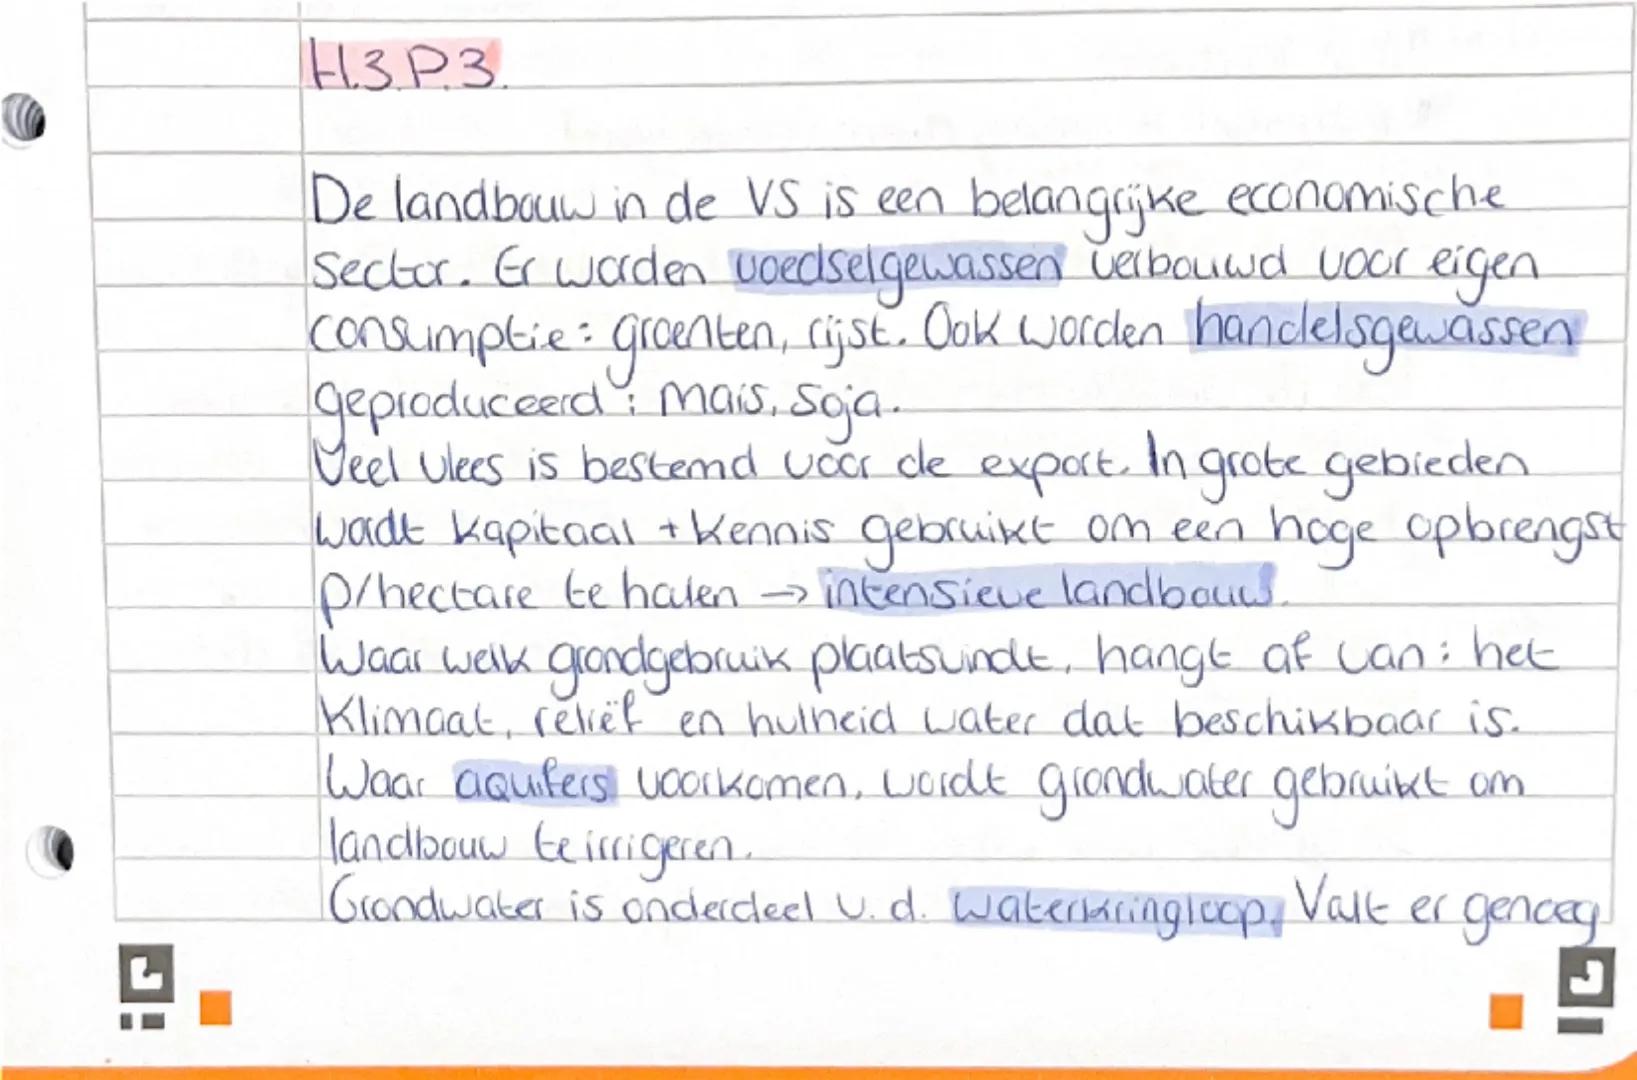 H3 P.3.
De landbouw in de VS is een belangrijke economische
Sector. Er worden voedselgewassen verbouwd voor eigen
consumptie: groenten, rijst. Ook worden handelsgewassen
geproduceerd: mais, soja.
Veel vlees is bestemd voor de export. In grote gebieden
wordt kapitaal + kennis gebruikt om een hoge opbrengst
p/hectare te halen → intensieve landbouw.
Waar welk grondgebruik plaatsvindt, hangt af van: het
Klimaat, reliëf en hulheid water dat beschikbaar is.
Waar aquifers voorkomen, wordt grondwater gebruikt om
landbouw te irrigeren.
Grondwater is onderdeel v. d. waterkringloop. Valt er genoeg